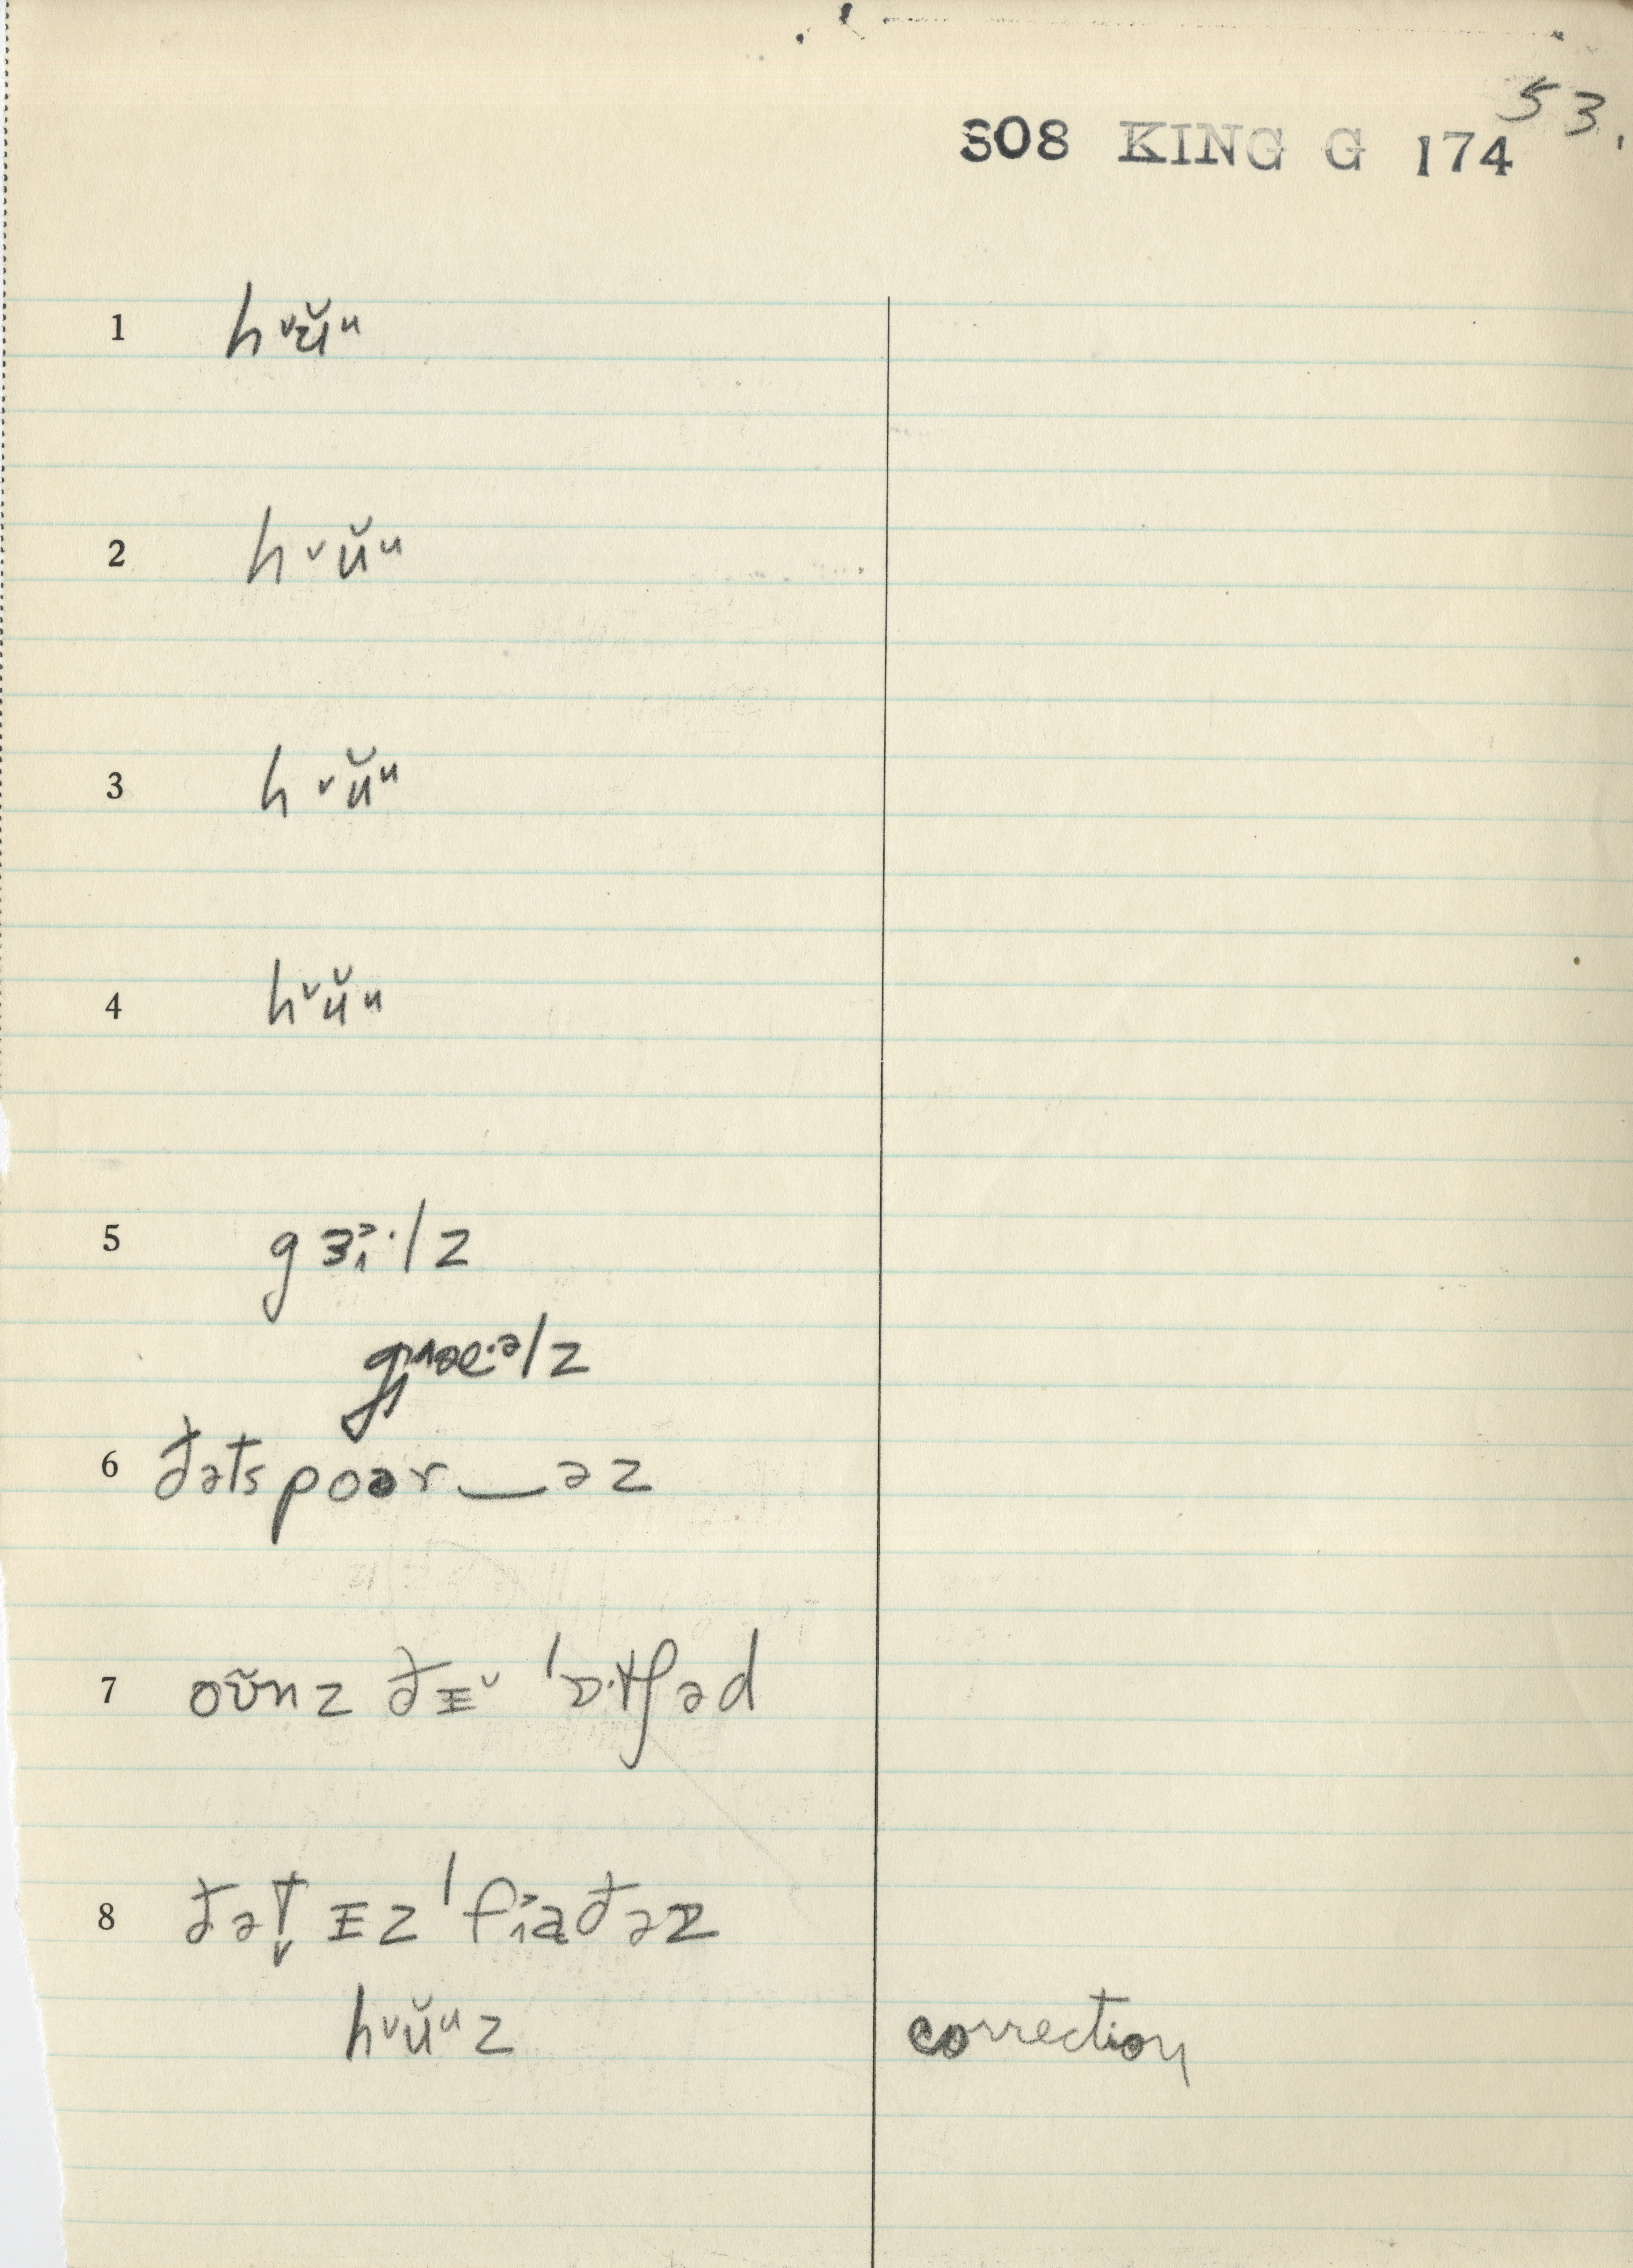 53.
308 KING G 174
1 hᵛŭᵘ
2 hᵛŭᵘ
3 hᵛŭᵘ
4 hᵛŭᵘ
5 gɜ˃ᵢ·lz
6 ðəts poər‿əz
7 oʊ̆nz ðɪˇ ˈɒ·tʃəd
8 ðət̬ ɪz ˈfɪaðəz
hᵛŭᵘz correction